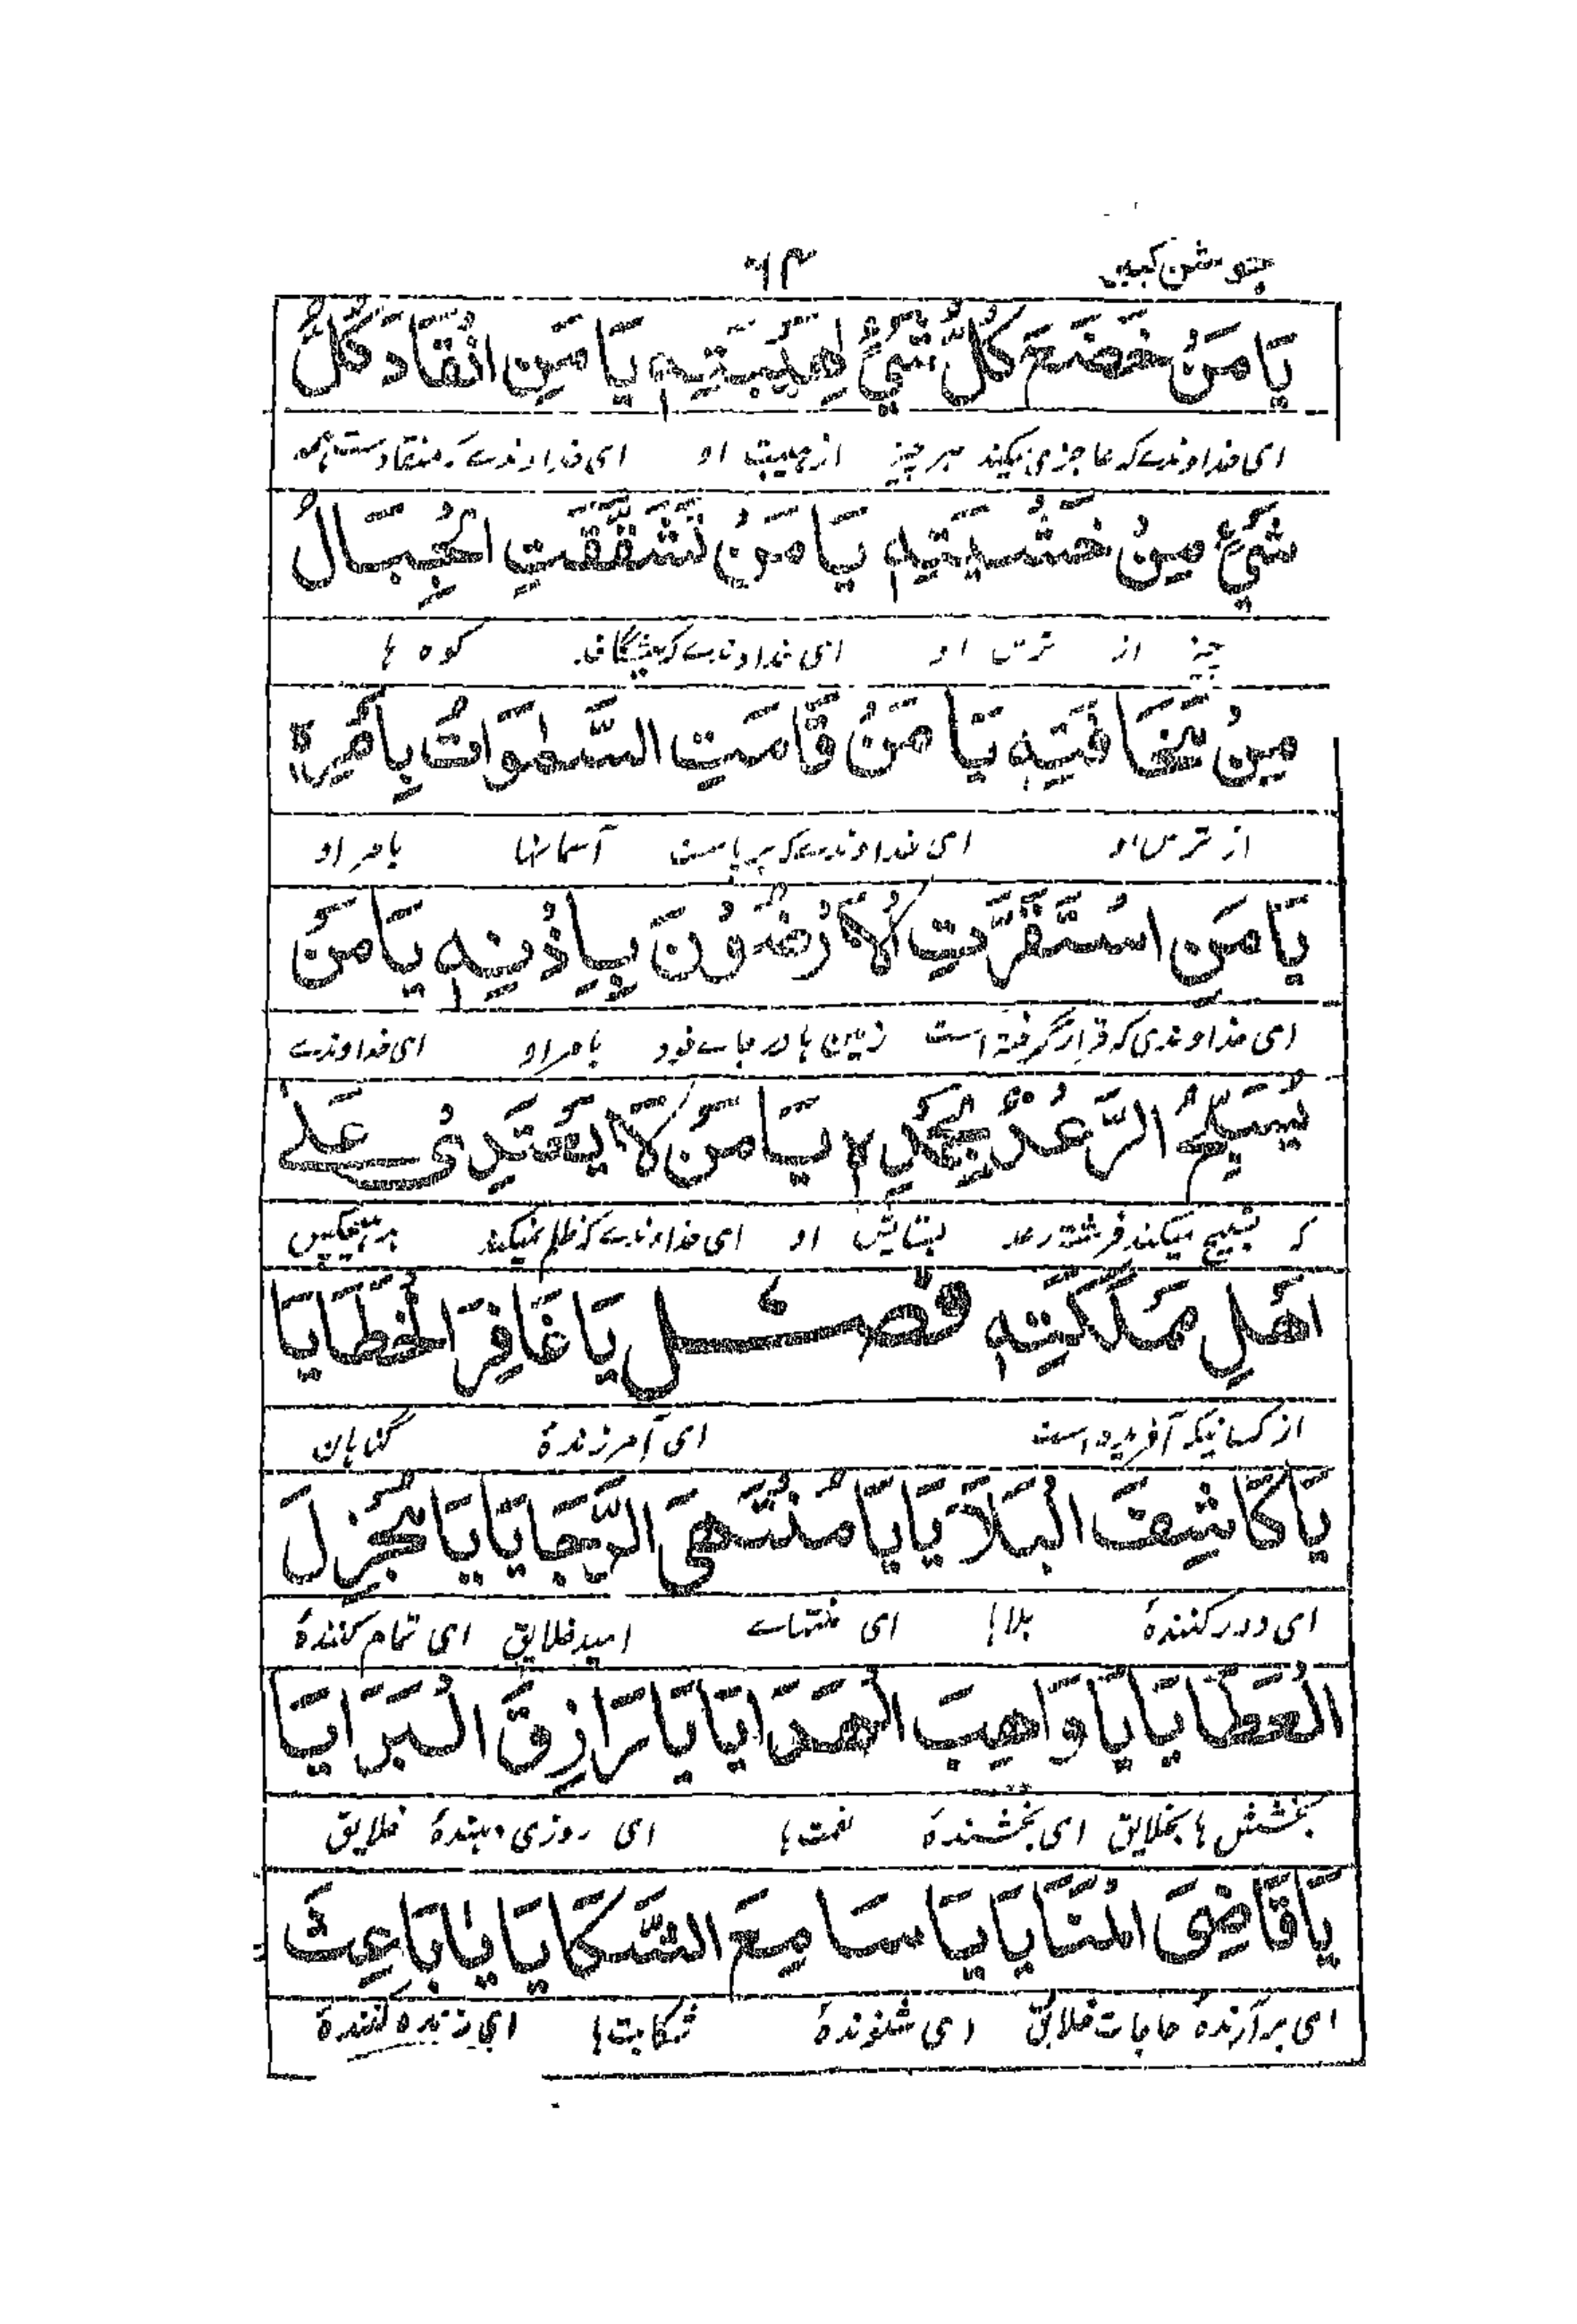 جوشن کبیر ۶۴
يَا مَنْ خَضَعَ كُلُّ شَيْءٍ لِهَيْبَتِهِ يَا مَنِ انْقَادَ كُلُّ
ای خداوندے که عاجزی میکند هر چیز از هیبت او ای خداوندے که منقادست همه
شَيْءٍ مِنْ خَشْيَتِهِ يَا مَنْ تَشَقَّقَتِ الْجِبَالُ
چیز از ترس او ای خداوندے که میشگافد کوه ها
مِنْ مَخَافَتِهِ يَا مَنْ قَامَتِ السَّمٰوَاتُ بِأَمْرِهِ
از ترس او ای خداوندے که برپاست آسمانها بامر او
يَا مَنِ اسْتَقَرَّتِ الْأَرَضُوْنَ بِإِذْنِهِ يَا مَنْ
ای خداوندی که قرار گرفته است زمین ها در جاے خود بامر او ای خداوندے
يُسَبِّحُ الرَّعْدُ بِحَمْدِهِ يَا مَنْ لَا يَعْتَدِيْ عَلٰے
که تسبیح میکند فرشته رعد بستایش او ای خداوندے که ظلم نمیکند بر هیچکس
أَهْلِ مَمْلَكَتِهِ فصل يَا غَافِرَ الْخَطَايَا
از کسانیکه آفریده است ای آمرزندهٔ گناهان
يَا كَاشِفَ الْبَلَايَا يَا مُنْتَهَى الرَّجَايَا يَا مُجْزِلَ
ای دور کنندهٔ بلاها ای منتهاے امید خلایق ای تمام کنندهٔ
الْعَطَايَا يَا وَاهِبَ الْهَدَايَا يَا رَازِقَ الْبَرَايَا
بخشش ها بخلایق ای بخشندهٔ نعمت ها ای روزی دهندهٔ خلایق
يَا قَاضِىَ الْمَنَايَا يَا سَامِعَ الشَّكَايَا يَا بَاعِثَ
ای برآرندهٔ حاجات خلایق ای شنوندهٔ شکایت ها ای زنده کنندهٔ